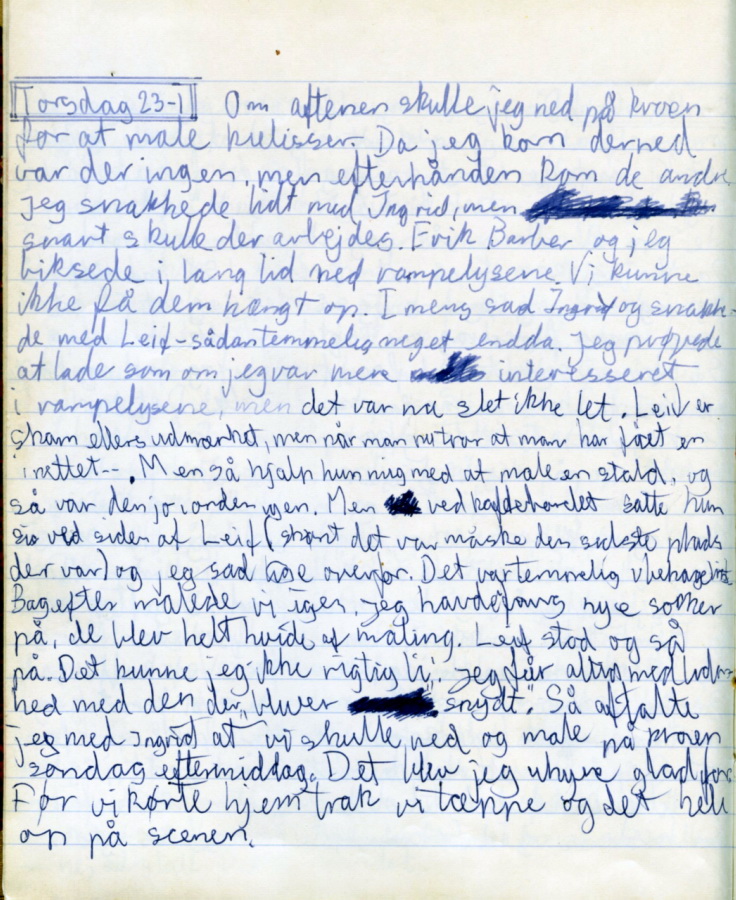 Torsdag 23-1 Om aftenen skulle jeg ned på kroen
for at male kulisser. Da jeg kom derned
var der ingen, men efterhånden kom de andre.
jeg snakkede lidt med Ingrid, men
snart skulle der arbejdes. Erik Barber og jeg
biksede i lang tid med rampelysene. Vi kunne
ikke få dem hængt op. Imens sad Ingrid og snakke-
de med Leif - sådan temmelig meget endda. Jeg prøvede
at lade som om jeg var mere interesseret
i rampelysene, men det var nu slet ikke let. Leif er
skam ellers udmærket, men når man nu tror at man har fået en
Men så hjalp hun mig med at male en stald, og
så var den jo i orden igen. Men ved kaffebordet satte hun
sig ved siden af Leif (skønt det var måske den sidste plads
der var) og jeg sad lige overfor. Det var temmelig ubehageligt.
Bagefter malede vi igen. jeg havde nye sokker
på, de blev helt hvide af maling. Leif stod og så
på. Det kunne jeg ikke rigtig li'. jeg får altid medliden-
hed med den der "bliver snydt". Så aftalte
jeg med Ingrid at vi skulle ned og male på kroen
søndag eftermiddag. Det blev jeg uhyre glad for.
Før vi kørte hjem trak vi tæppe og det hele
op på scenen.